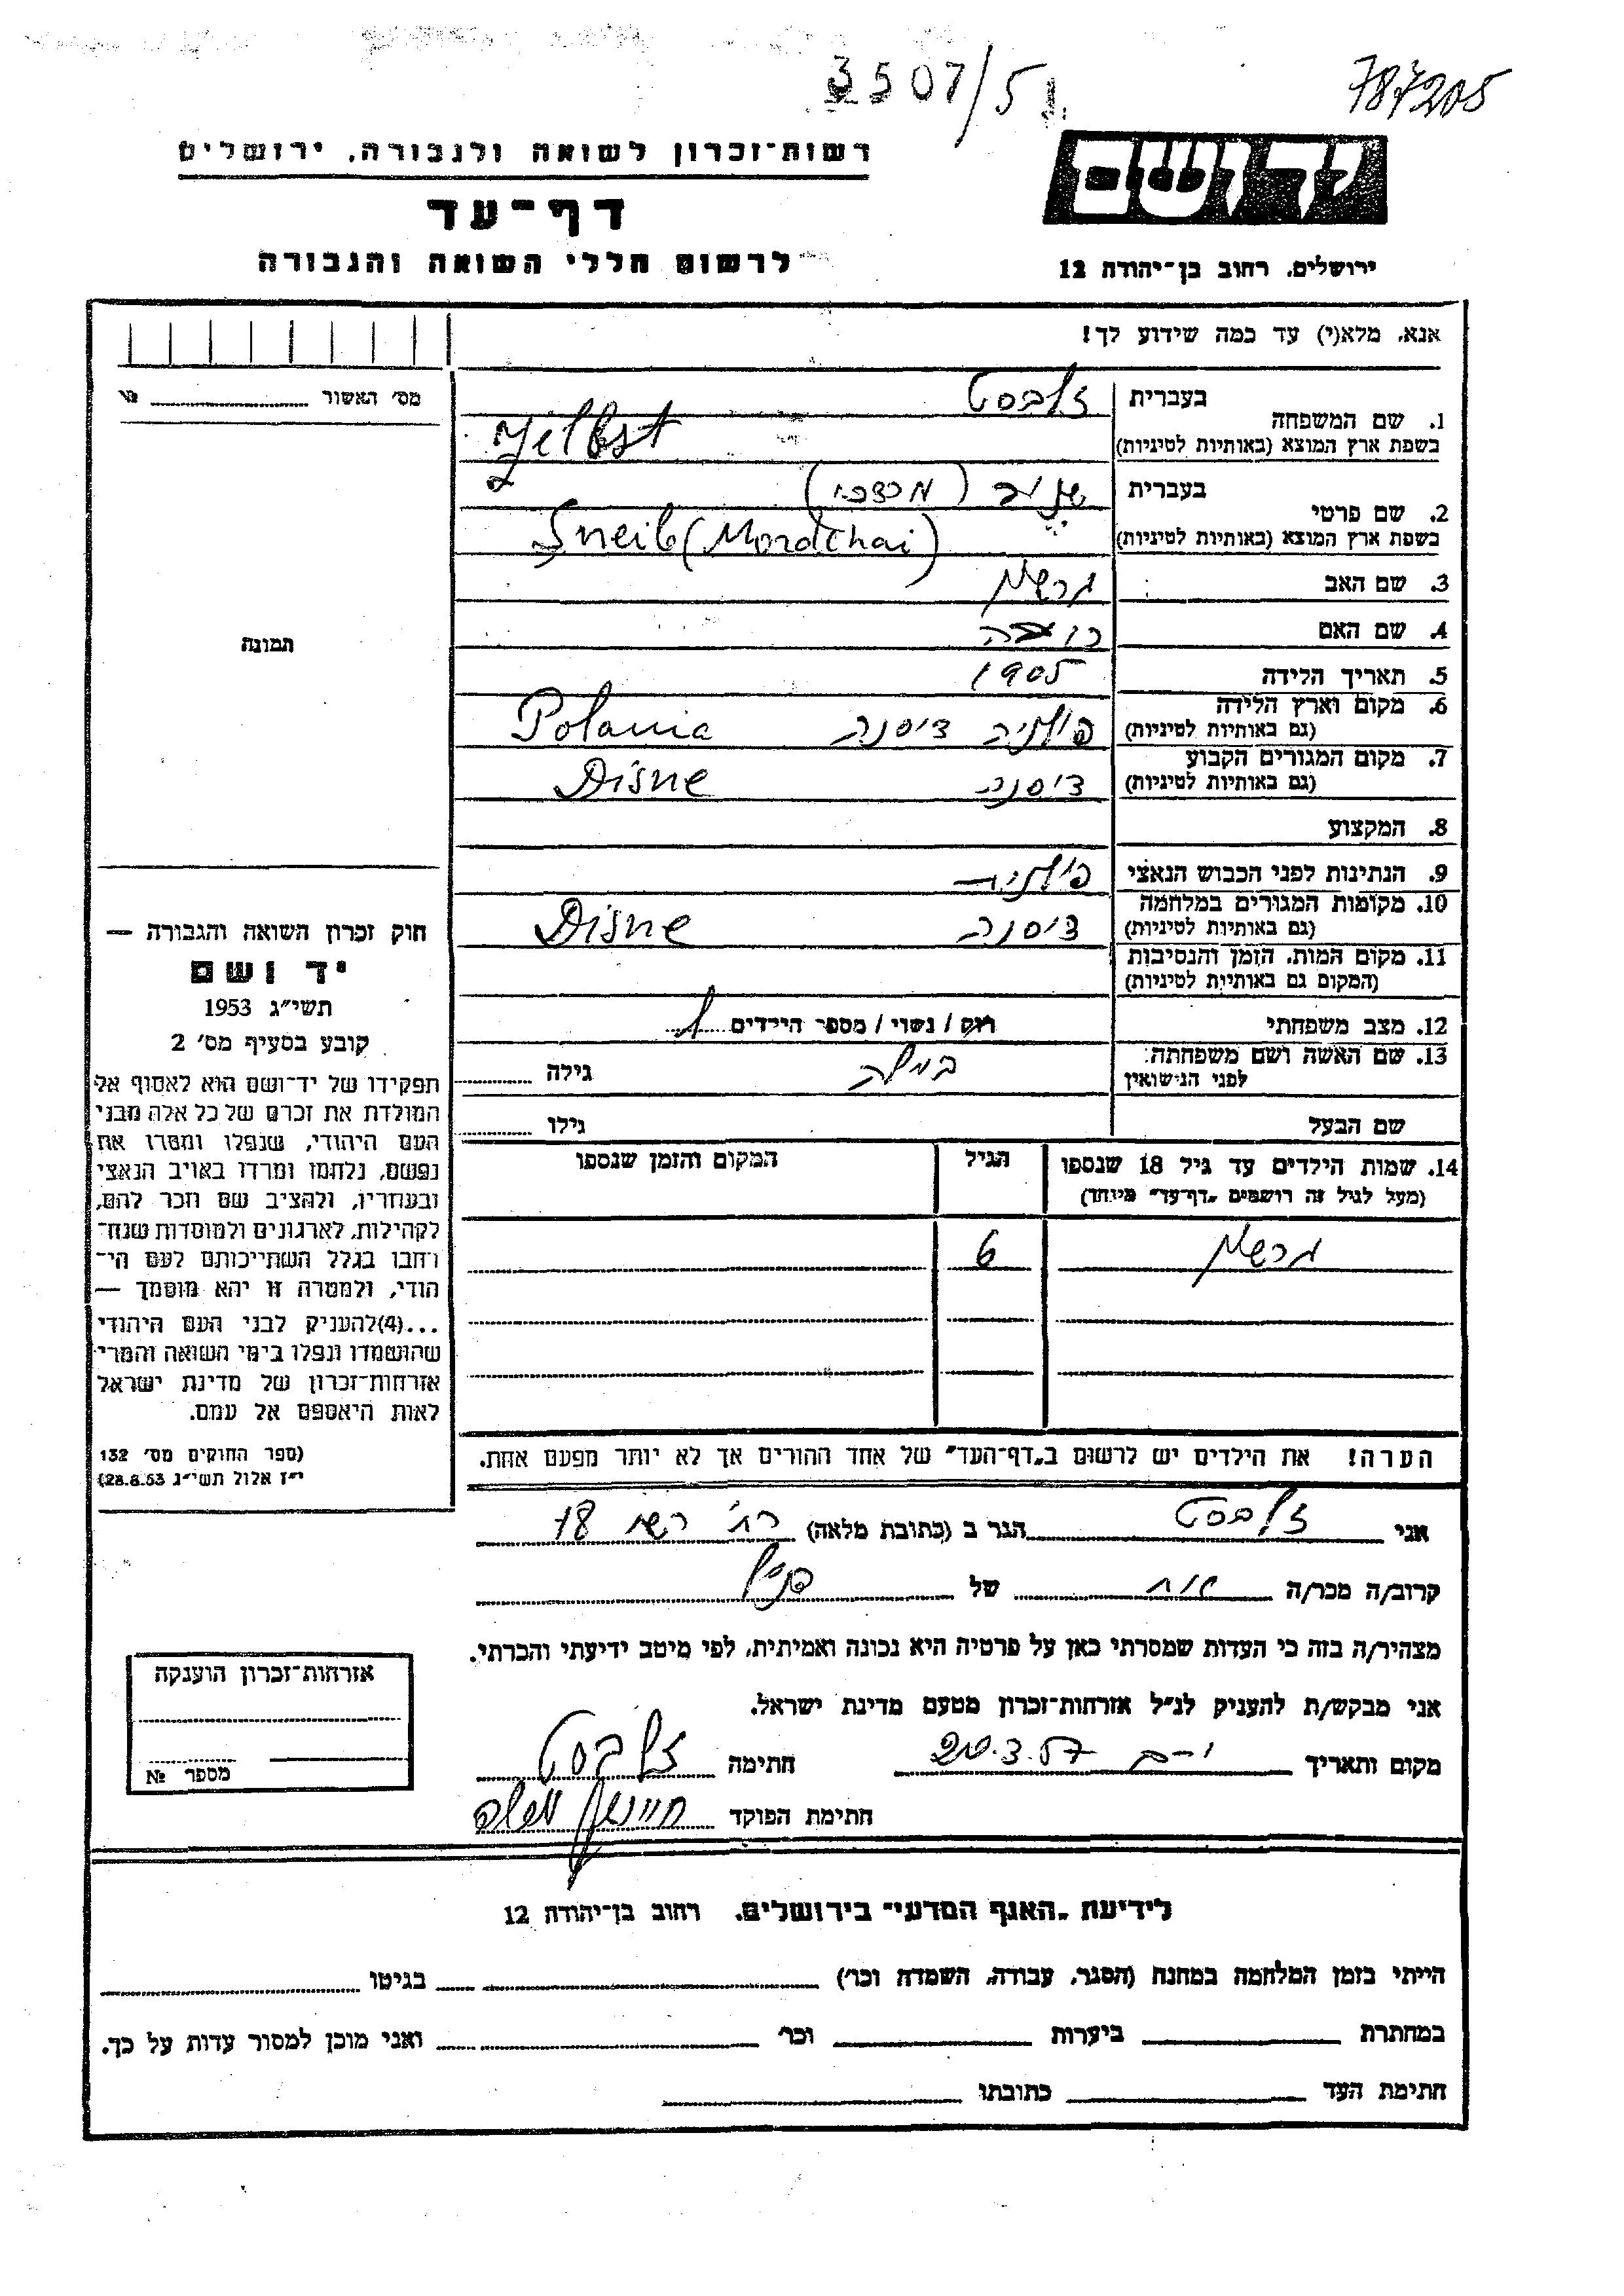 3507/51
787205
רשות־זכרון לשואה ולגבורה, ירושלים
דף־עד
לרשום חללי השואה והגבורה
יד ושם
ירושלים, רחוב בן־יהודה 12
אנא, מלא(י) עד כמה שידוע לך!
מס׳ האשור № 
1. שם המשפחה
בעברית זלבסט
בשפת ארץ המוצא (באותיות לטיניות) Zelbst
2. שם פרטי
בעברית (מרדכי)
בשפת ארץ המוצא (באותיות לטיניות) Sneib (Mordchai)
3. שם האב גרשון
4. שם האם
5. תאריך הלידה 1905
6. מקום וארץ הלידה
(גם באותיות לטיניות) פולניה דיסנה Polania
7. מקום המגורים הקבוע
(גם באותיות לטיניות) דיסנה Disne
8. המקצוע
9. הנתינות לפני הכבוש הנאצי פולנית
10. מקומות המגורים במלחמה
(גם באותיות לטיניות) דיסנה Disne
11. מקום המות, הזמן והנסיבות
(המקום גם באותיות לטיניות)
12. מצב משפחתי רוק / נשוי / מספר הילדים 1
13. שם האשה ושם משפחתה
לפני הנישואין גילה
שם הבעל גילו
14. שמות הילדים עד גיל 18 שנספו
(מעל לגיל זה רושמים „דף־עד״ מיוחד)
הגיל
המקום והזמן שנספו
גרשון 6
הערה! את הילדים יש לרשום ב„דף־העד״ של אחד ההורים אך לא יותר מפעם אחת.
תמונה
חוק זכרון השואה והגבורה —
יד ושם
תשי״ג 1953
קובע בסעיף מס׳ 2
תפקידו של יד־ושם הוא לאסוף אל
המולדת את זכרם של כל אלה מבני
העם היהודי, שנפלו ומסרו את
נפשם, נלחמו ומרדו באויב הנאצי
ובעוזריו, ולהציב שם וזכר להם,
לקהילות, לארגונים ולמוסדות שנח־
רבו בגלל השתייכותם לעם הי־
הודי, ולמטרה זו יהא מוסמך —
...(4)להעניק לבני העם היהודי
שהושמדו ונפלו בימי השואה והמרי
אזרחות־זכרון של מדינת ישראל
לאות היאספם אל עמם.
(ספר החוקים מס׳ 132
י״ז אלול תשי״ג 28.8.53)
אני זלבסט הגר ב (כתובת מלאה) רח׳ רשי 18
קרוב/ה מכר/ה אח של
מצהיר/ה בזה כי העדות שמסרתי כאן על פרטיה היא נכונה ואמיתית, לפי מיטב ידיעתי והכרתי.
אני מבקש/ת להעניק לנ״ל אזרחות־זכרון מטעם מדינת ישראל.
מקום ותאריך י-ם 20.3.57 חתימה זלבסט
חתימת הפוקד
אזרחות־זכרון הוענקה
מספר №
לידיעת „האגף המדעי״ בירושלים, רחוב בן־יהודה 12
הייתי בזמן המלחמה במחנה (הסגר, עבודה, השמדה וכר׳) בגיטו
במחתרת ביערות וכר׳ ואני מוכן למסור עדות על כך.
חתימת העד כתובתו